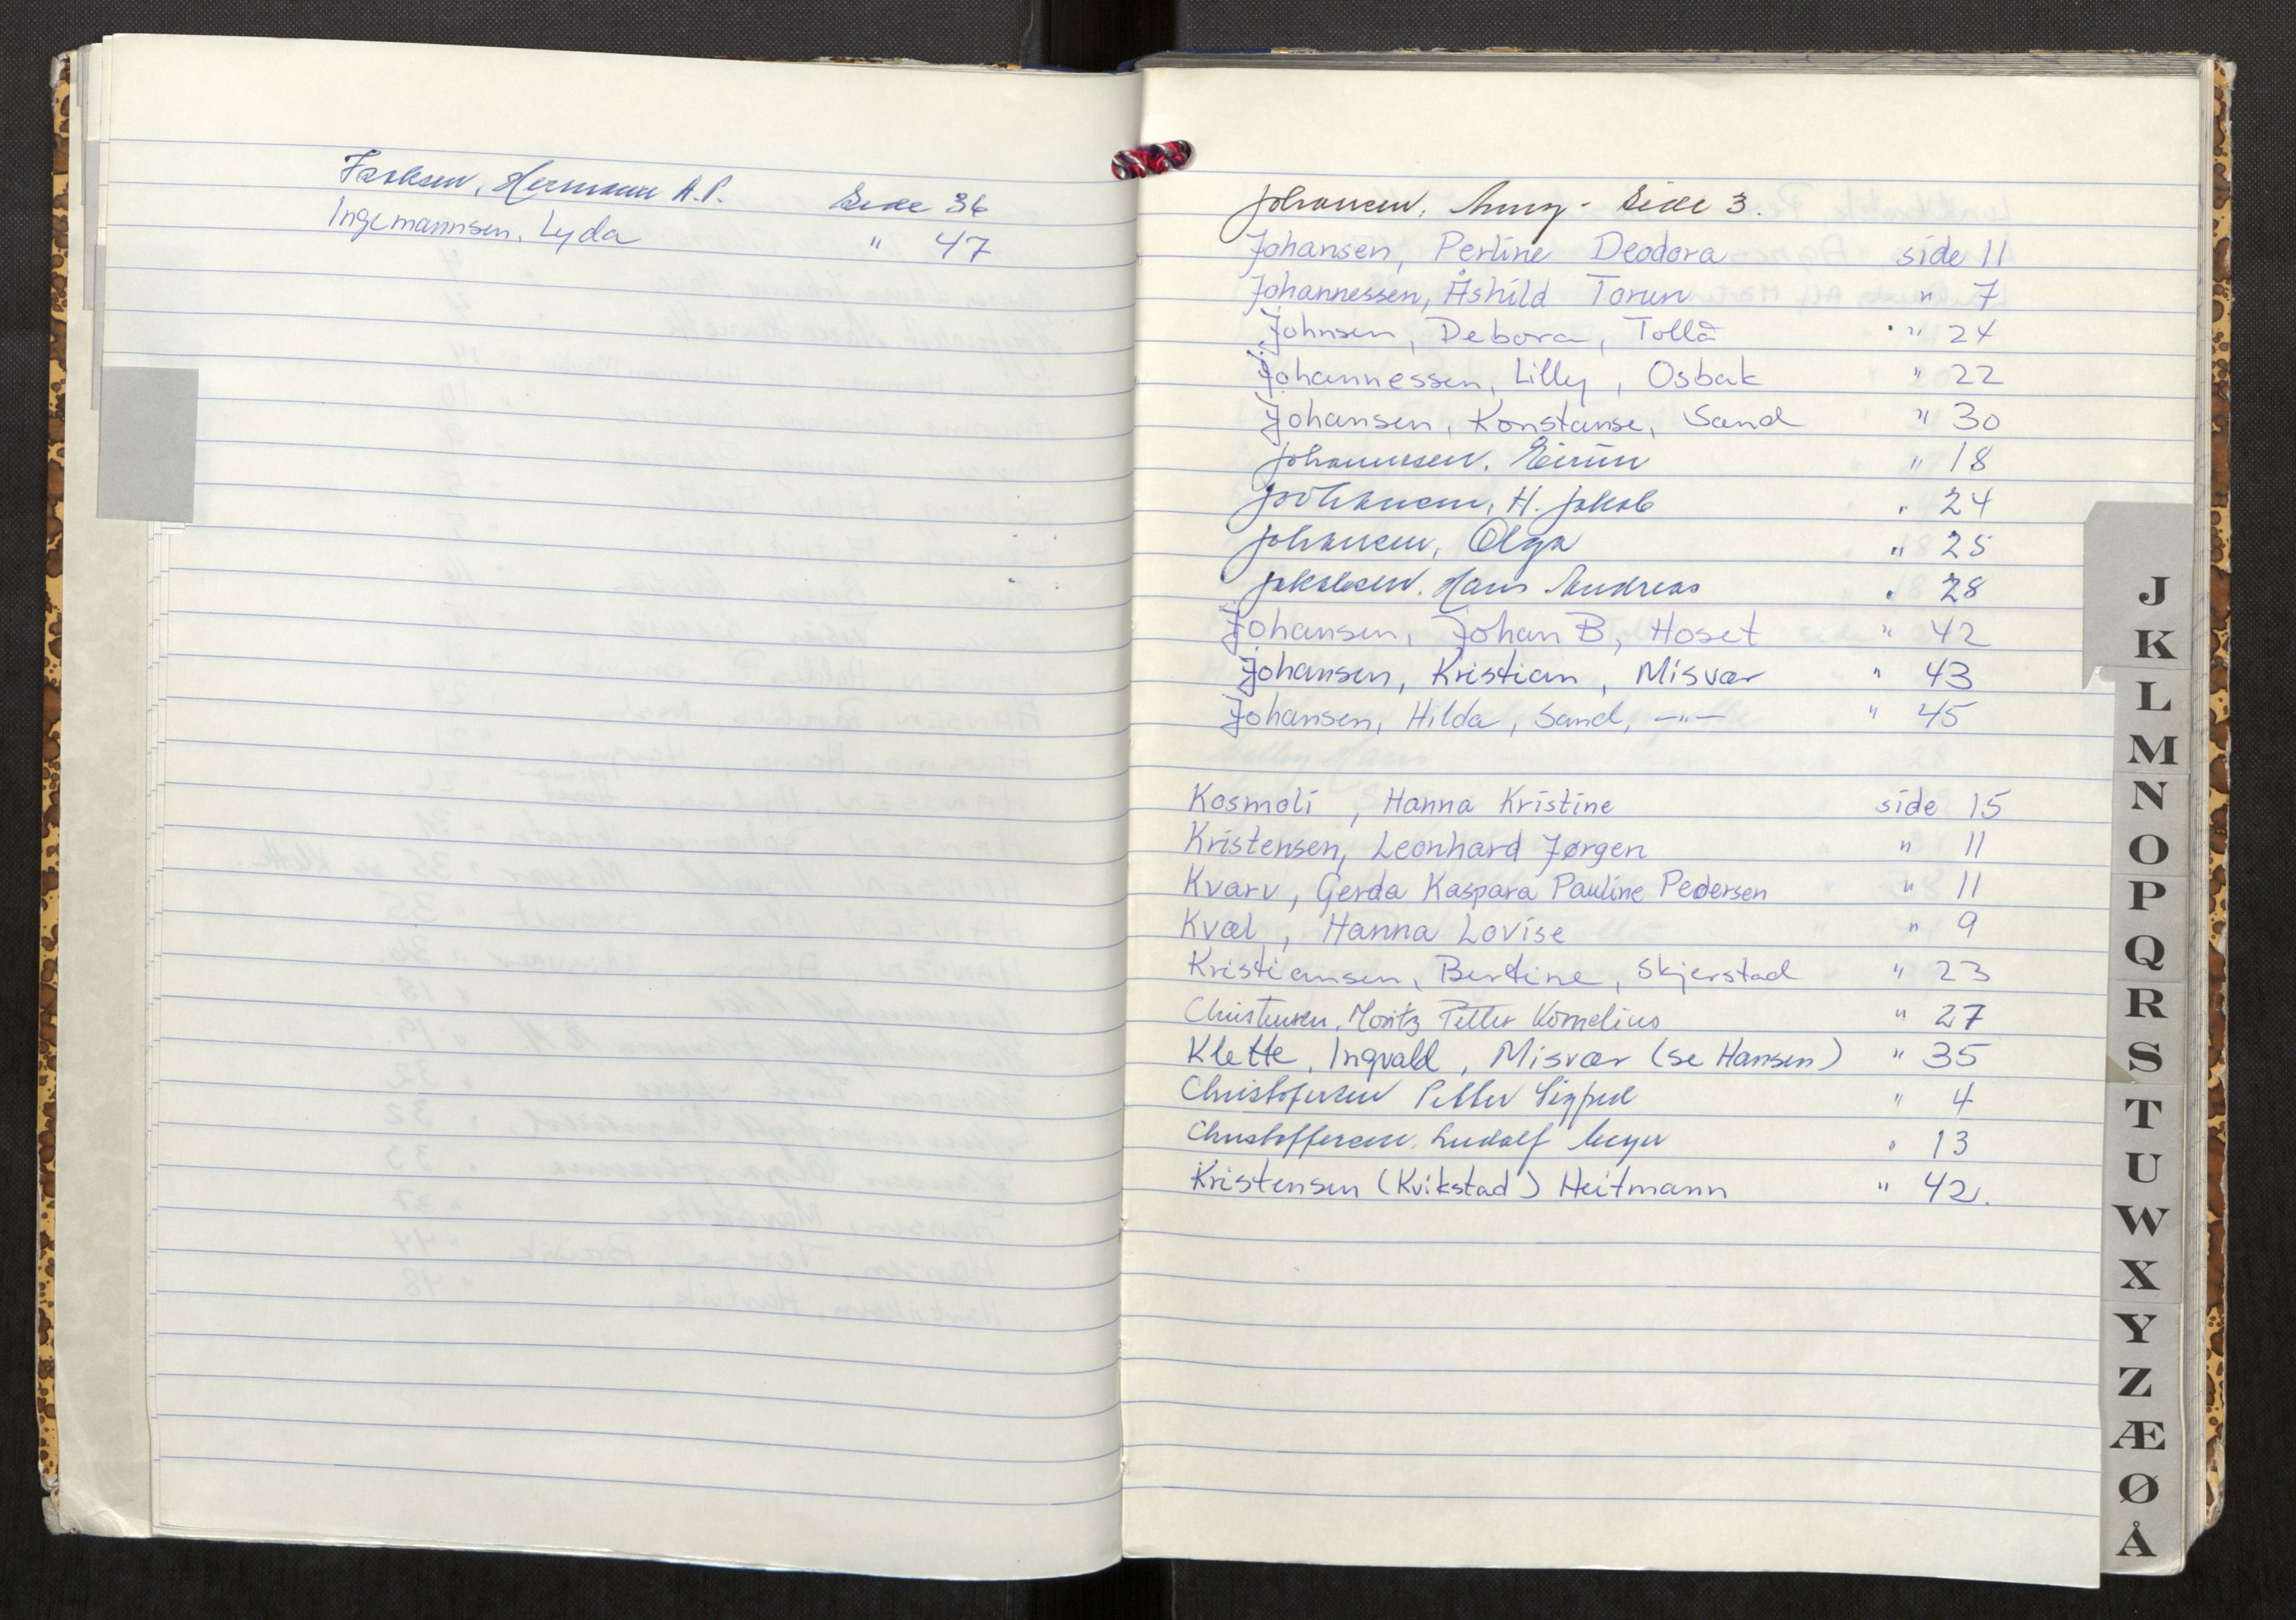 Isaksen, Hermann A.P. Side 36
Ingemannsen, Lyda " 47
Johansen, Anny - Side 3.
Johansen, Perline Deodora side 11
Johannessen, Åshild Torun " 7
Johnsen, Debora, Tollå " 24
Johannessen, Lilly, Osbak " 22
Johansen, Konstanse, Sand " 30
Johannesen, Eirun " 18
Johansen, H. Jakob " 24
Johansen, Olga " 25
Jakobsen, Hans Andreas " 28
Johansen, Johan B, Hoset " 42
Johansen, Kristian, Misvær " 43
Johansen, Hilda, Sand, —"— " 45
Kosmoli, Hanna Kristine side 15
Kristensen, Leonhard Jørgen " 11
Kvarv, Gerda Kaspara Pauline Pedersen " 11
Kvæl, Hanna Lovise " 9
Kristiansen, Bertine, Skjerstad " 23
Christensen, Moritz Petter Kornelius " 27
Klette, Ingvald, Misvær (se Hansen) " 35
Christofersen Petter Sigfred " 4
Christoffersen, Ludolf Meyer " 13
Kristensen (Kvikstad) Heitmann " 42.
J
K
L
M
N
O
P
Q
R
S
T
U
W
X
Y
Z
Æ
Ø
Å